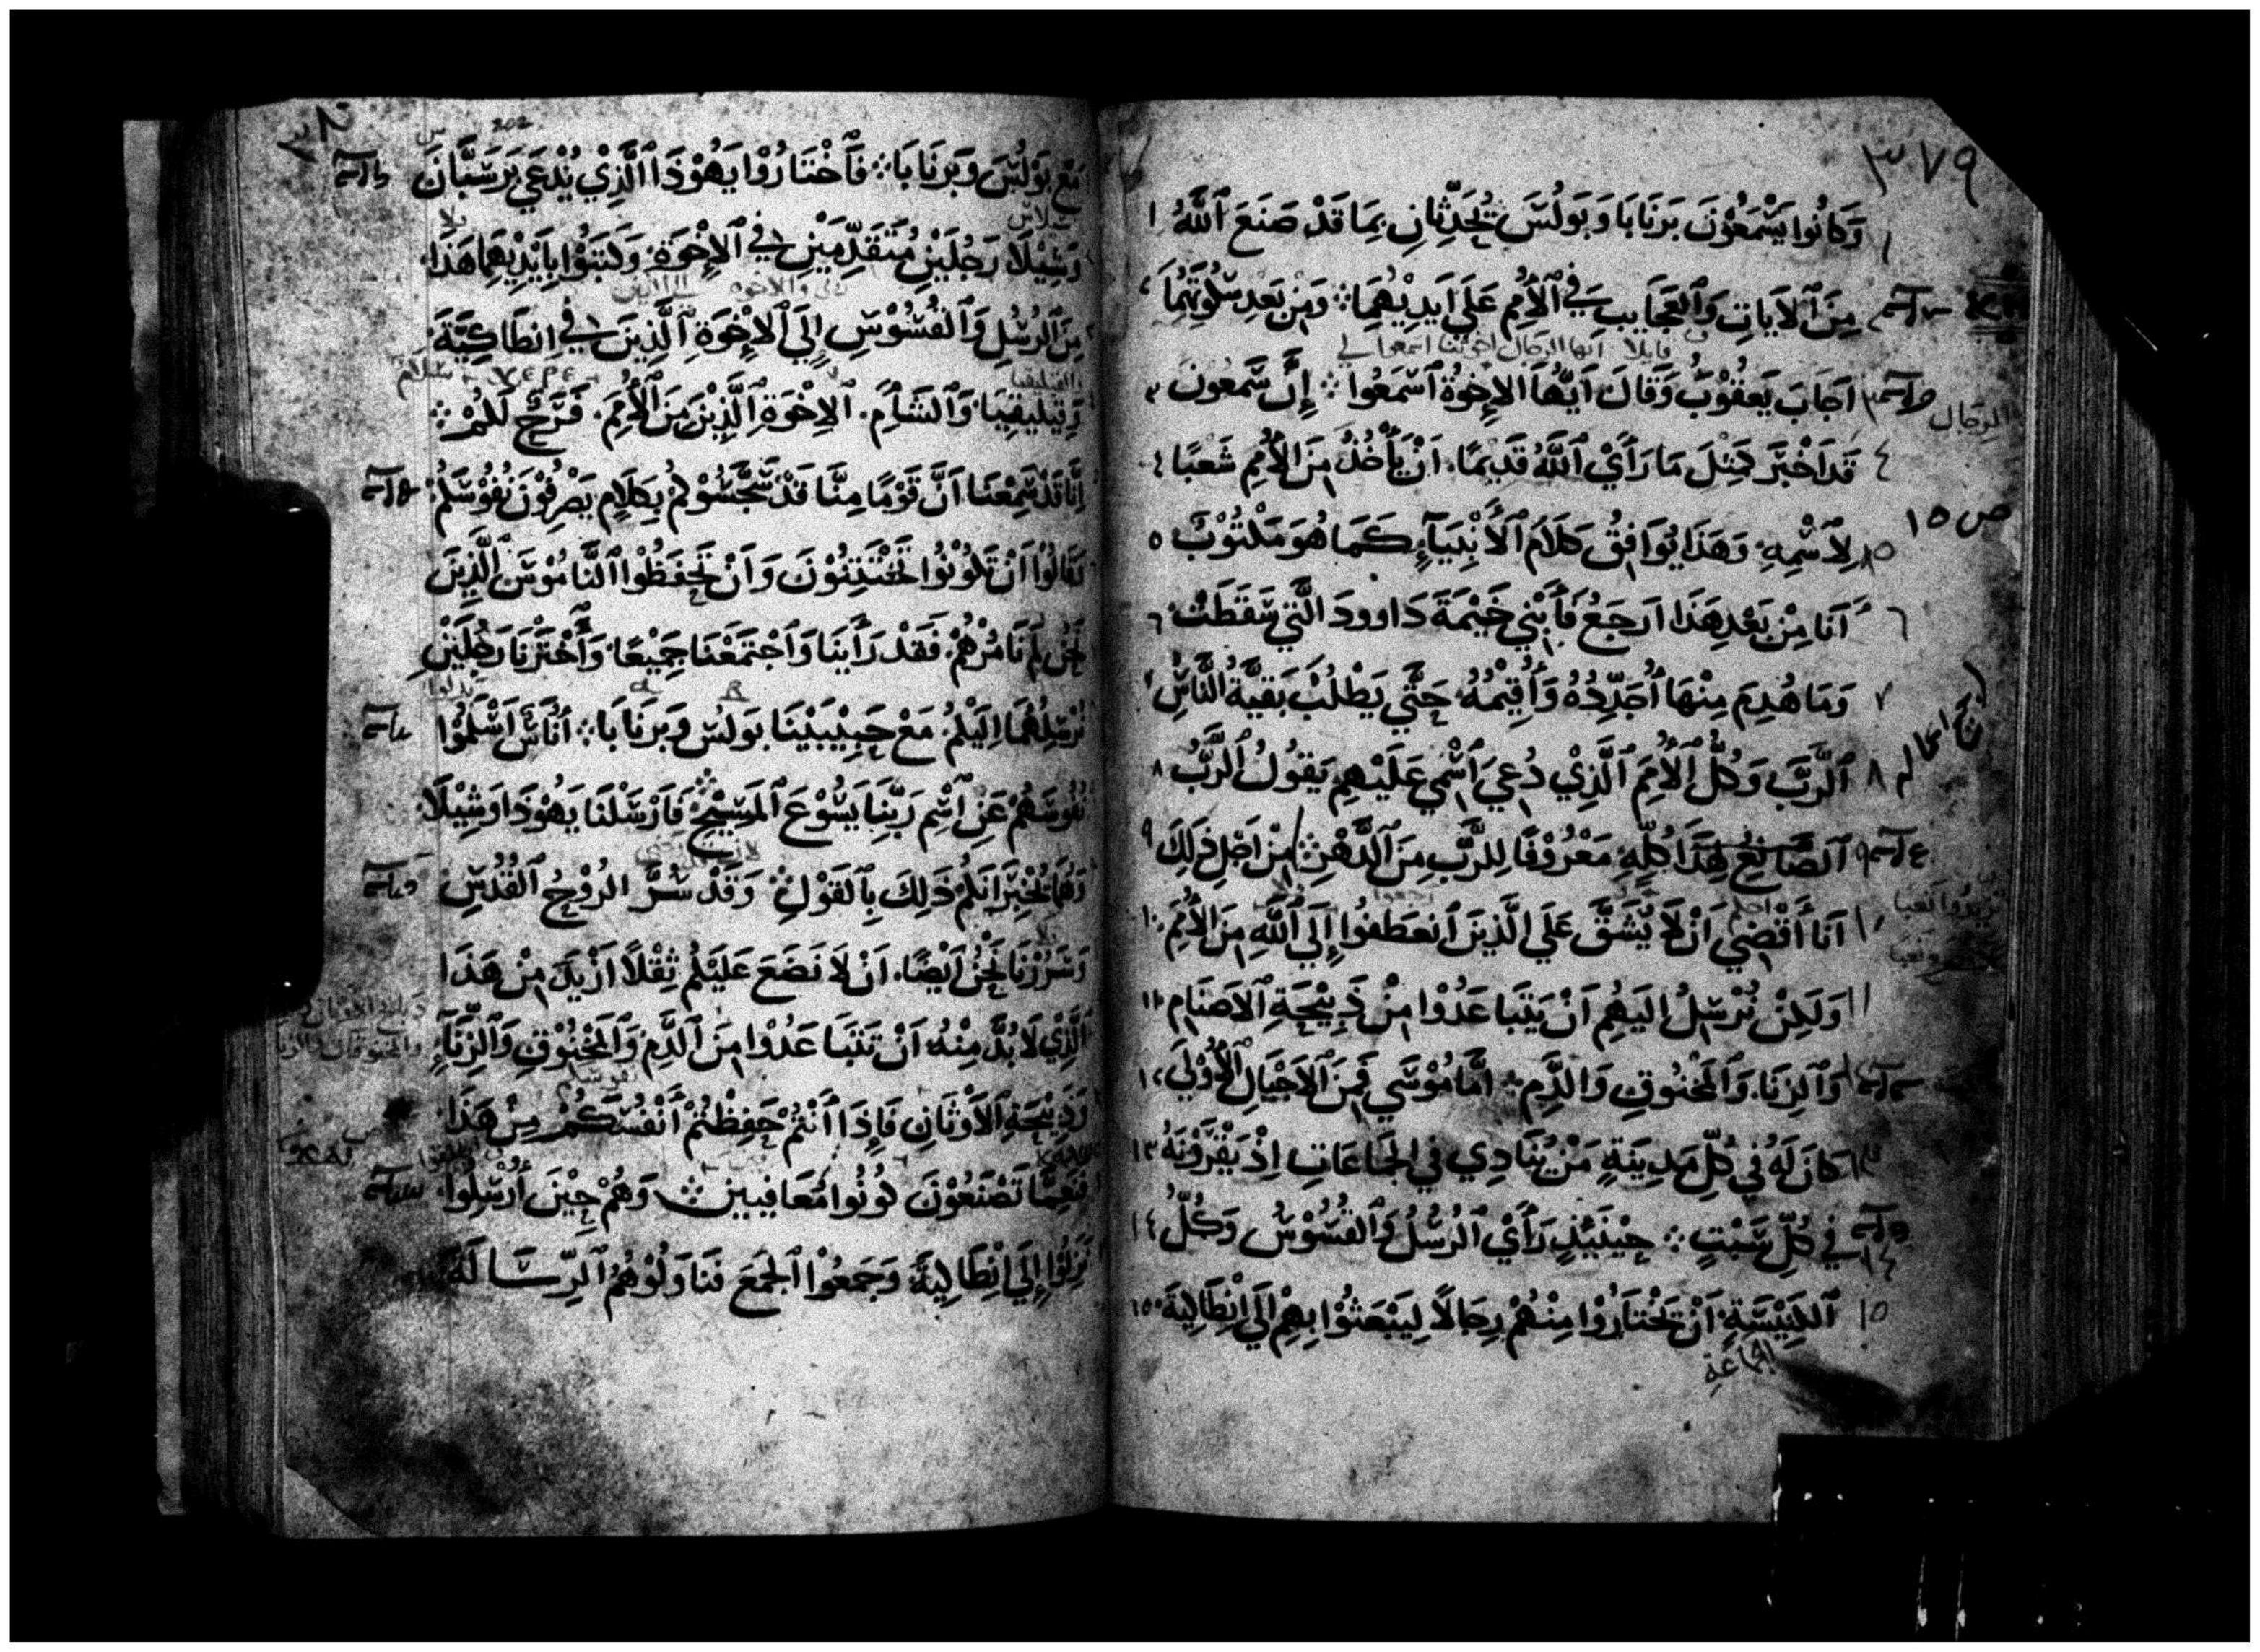 ٣٧٩
١ وَكَانُوا يَسْمَعُوْنَ بَرنَابَا وَبَولُسَ يُحَدِّثَانِ بِمَا قَدْ صَنَعَ ٱللَّهُ ١
مِنَ ٱلآيَاتِ وَٱلعَجَايِبِ فِي ٱلأُمَمِ عَلَي اَيدِيْهُمَا ؞ وَمِن بَعدِ سُكُوتِهُمَا ٢
قايلا ايها الرجال اخوتنا اسمعوا لي
الرجال
اَجَابَ يَعقُوْبُ وَقَالَ اَيُّهَا الاِخوَةُ ٱسْمَعُوا ؞ إِنَّ سَمعُونَ ٣
٤ قَد اَخْبَرَ كَمِثْلَ مَا رَأَيْ ٱللَّهُ قَدِيْمًا، اَنْ يَأْخُذَ مِنَ الأُمَمِ شَعْبًا ٤
ص ١٥
١٥ لِاَسْمِهِ، وَهَذَا يُوَافِقُ كَلَامَ ٱلأَنْبِيَآءِ كَمَا هُوَ مَكْتُوْبٌ ٥
٦ أَنَا مِنْ بَعْدِ هَذَا اَرجَعُ فَأَبْنِي خَيْمَةَ دَاوودَ الَّتِي سَقَطَتْ ٦
٧ وَمَا هُدِمَ مِنْهَا أُجَدِّدُهُ وَأُقِيْمُهُ، حَتَّي يَطْلُبْ بَقيَّةُ النَّاسِ ٧
٨ ٱلرَّبَّ وَكُلُّ ٱلأُمَمِ ٱلَّذِي دُعِيَ ٱسْمِي عَلَيْهِم يَقُولُ ٱلرَّبُّ ٨
٩ ٱلصَّانِعُ هَذَا كُلِّهِ، مَعْرُوْفًا لِلرَّبِّ مِنَ ٱلدَّهْرِ ؞ مِنْ اَجْلِ ذَلِكَ ٩
١٠ اَنَا أَقْضِي اَنْ لَا يُشَقَّ عَلَي الَّذِينَ ٱنعَطَفُوا إِلَي ٱللَّهِ مِنَ الأُمَمَ ١٠
١١ وَلَكِنْ نُرْسِلُ اليَهِم اَنْ يَتَبَاعَدُوْا مِنْ ذَبِيْحَةِ ٱلاَصنَامِ ١١
١٢ وَٱلزِنَا، وَٱلمَخنُوقِ وَالدَّمِ ؞ اَمَّا مُوْسَي فَمِنَ ٱلاَجْيَالِ ٱلأُوْلَي ١٢
١٣ كَانَ لَهُ فِي كُلِّ مَدِينَةٍ مَنْ يُنَادِي فِي الجَمَاعَاتِ اِذْ يَقْرَوْنَهُ ١٣
١٤ فِي كُلِّ سَبْتٍ ؞ حِيْنَيْذٍ رَأَيْ ٱلرُسُلُ وَٱلقُسُوْسُ وَكُلُّ ١٤
١٥ ٱلكَنِيْسَةِ، اَنْ يَخْتَارُوْا مِنْهُمْ رِجَالاً لِيَبْعَثُوْا بِهِمْ إِلَي اِنْطَاكِيَةَ ١٥
الجماعة
مَعَ بَوْلُسَ وَبَرْنَابَا ؞ فَٱخْتَارُوْا يَهُوْذَا ٱلَّذِيْ يُدْعَي بَرسَبَّانَ
وَشِيْلَا رَجُلَيْنِ مُتَقَدِّمَيْنِ فِي ٱلاِخْوَةِ، وَكَتَبُوْا بِاَيْدِيْهِمَا هَذَا
مِنَ ٱلرُسُلِ وَٱلقُسُوْسِ إِلَي ٱلاِخْوَةِ ٱلَّذِينَ فِي اِنطَاكِيَّةَ
وَقِيلِيقِيَا، وَٱلشَامِ، ٱلاِخْوَةِ ٱلَّذِيْنَ مِنَ ٱلأُمَمَ، فَرَحٌ لَكُمْ ؞
اِنَّا قَدْ سَمِعْنَا اَنَّ قَوْمًا مِنَّا قَدْ سَجَّسُوْكُم بِكَلَامٍ يَصْرِفُوْنَ نُفُوْسَكُم
وَقَالُوا اَنْ تَكُوْنُوا تَخْتَتِنُوْنَ وَاَنْ تَحْفَظُوْا ٱلنَّامُوْسَ الَّذِينَ
نَحْنُ لَم نَامُرْهُمْ، فَقَدْ رَأَيْنَا وَٱجْتَمَعْنَا جَمِيْعًا، وَٱخْتَرْنَا رَجُلَيْنِ
نُرْسِلُهُمَا اِلَيْكُمْ، مَعَ حَبِيْبَيْنَا بَولُسَ وَبَرنَابَا ؞ اُنَاسٌ اَسْلَمُوْا
نُفُوسَهُمْ عَنِ ٱسْمِ رَبِّنَا يَسُوْعَ ٱلمَسِيْحِ ؞ فَاَرْسَلْنَا يَهُوْذَا وَشِيْلَا
وَهُمَا يُخْبِرَانِكُم ذَلِكَ بِٱلقَوْلِ ؞ وَقَدْ سُرَّ الرُوْحُ ٱلقُدُسِ
وَسُرِرْنَا نَحْنُ اَيْضًا، اَنْ لَا نَضَعَ عَلَيْكُم ثِقْلاً اَزْيَدَ مِنْ هَذَا
ٱلَّذِيْ لَا بُدَّ مِنْهُ، اَنْ تَتَبَاعَدُوْا مِنَ ٱلدَّمِ وَٱلمَخْنُوْقِ وَٱلزِّنَآءِ
وَذَبِيْحَةِ ٱلاَوْثَانِ فَإِذَا أَنْتُمْ حَفِظْتُمْ أَنْفُسَكُمْ مِنْ هَذَا
فَنِعِمَّا تَصْنَعُوْنَ كُوْنُوا مُعَافِيين ؞ وَهُمْ حِيْنَ أُرْسِلُوا
نَزَلُوْا إِلَي اِنْطَاكِيَةَ، وَجَمَعُوْا ٱلجَمْعَ فَنَاوَلُوْهُمُ ٱلرِّسَالَةَ